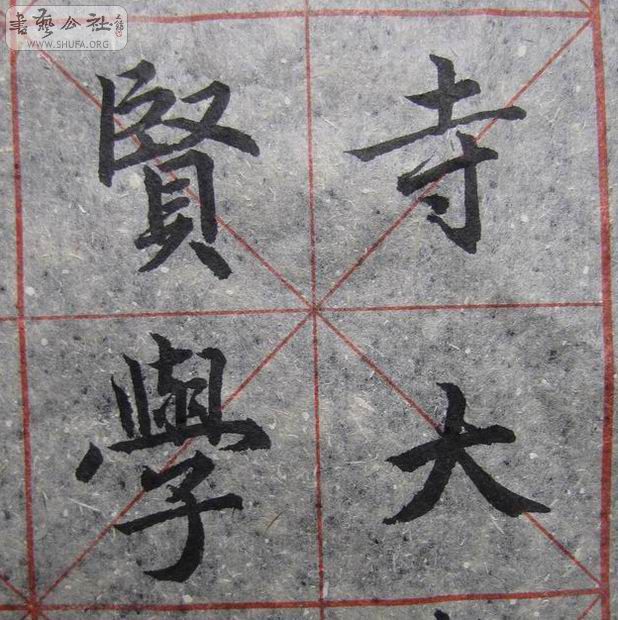 寺大
賢學
書藝公社
WWW.SHUFA.ORG